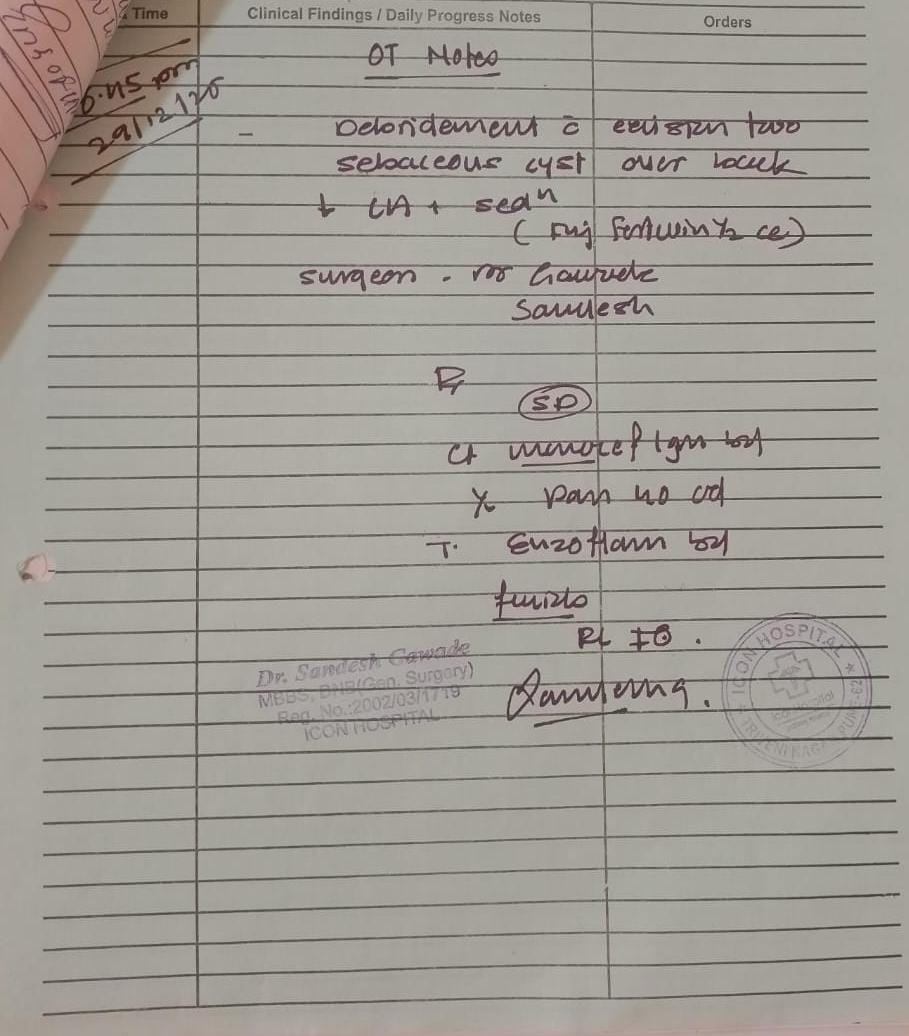 Time Clinical Findings / Daily Progress Notes Orders
OT Notes
29/12/25
- Debridement c̄ excision two
sebaceous cyst over back
↓ LA + sedn
(Inj Fortwin ½ cc)
surgeon - Dr Gawade
Sandesh
Rx
SD
Ct monocef 1gm bd
Pan 40 od
T. Enzoflam bd
fluids
RL
Dr. Sandesh Gawade
MBBS, DNB(Gen. Surgery)
Reg. No.:2002/03/1719
ICON HOSPITAL
ICON HOSPITAL ★ TRIVENI NAGAR, PUNE-62 ★
Icon Hospital